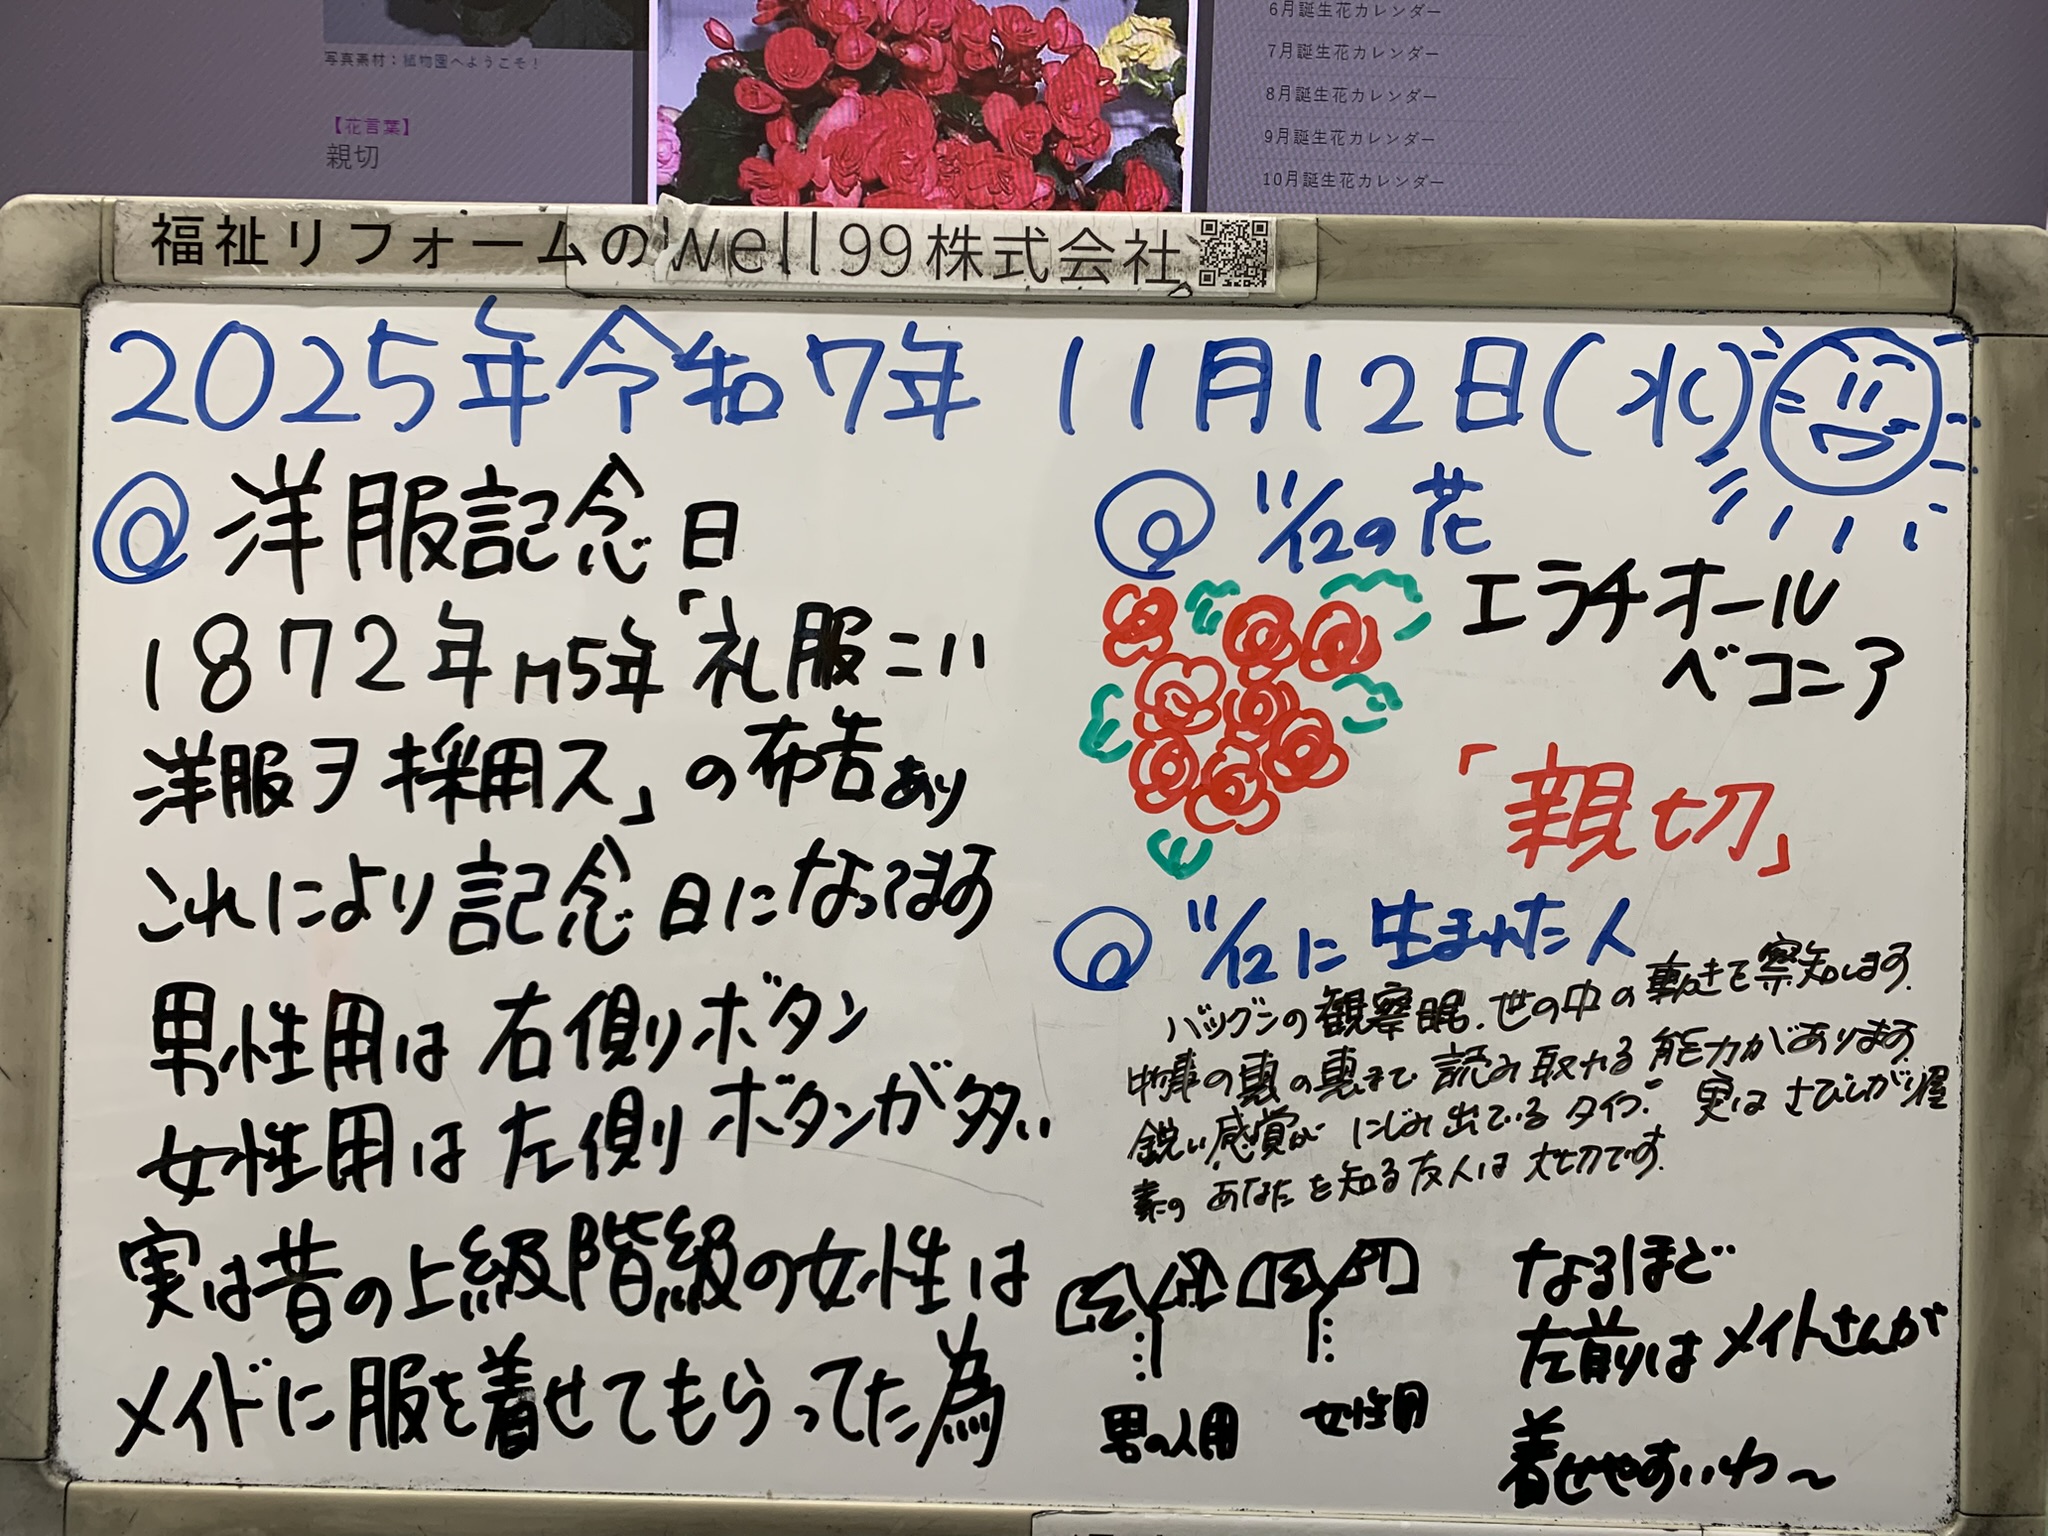 写真素材：植物園へようこそ！
【花言葉】
親切
6月誕生花カレンダー
7月誕生花カレンダー
8月誕生花カレンダー
9月誕生花カレンダー
10月誕生花カレンダー
福祉リフォームのwell99株式会社
2025年令和7年 11月12日(水)
洋服記念日
1872年M5年「礼服ニハ
洋服ヲ採用ス」の布告あり
これにより記念日になってます
男性用は右側リボタン
女性用は左側リボタンが多い
実は昔の上級階級の女性は
メイドに服を着せてもらってた為
11/12の花
エラチオール
ベコニア
「親切」
11/12に生まれた人
バツグンの観察眼、世の中の動きを察知します。
物事の裏の裏まで読み取れる能力があります。
鋭い感覚がにじみ出ているタイプ。実はさびしがり屋
素のあなたを知る友人は大切です。
男の人用
女性用
なるほど
左前りはメイトさんが
着せやすいわ～